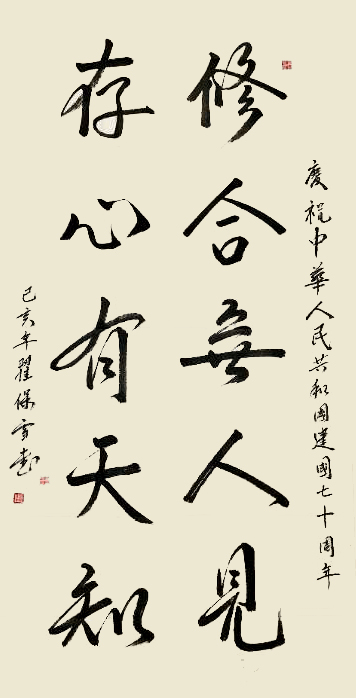 慶祝中華人民共和國建國七十周年
修合無人見
存心有天知
己亥年翟保重書